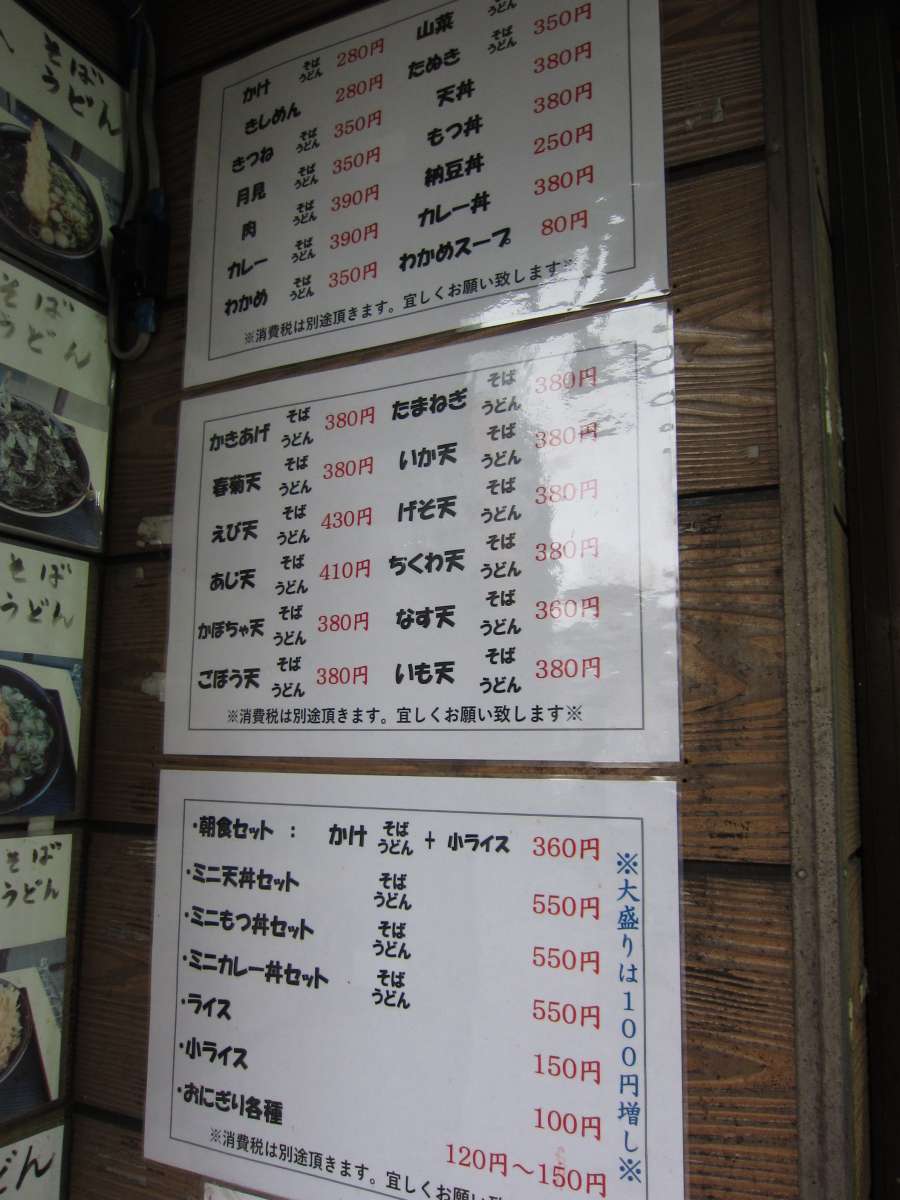 そば
うどん
そば
うどん
そば
うどん
そば
うどん
うどん
かけ そば うどん 280円
きしめん 280円
きつね そば うどん 350円
月見 そば うどん 350円
肉 そば うどん 390円
カレー そば うどん 390円
わかめ そば うどん 350円
山菜 そば うどん
たぬき そば うどん 350円
天丼 380円
もつ丼 380円
納豆丼 250円
カレー丼 380円
わかめスープ 80円
※消費税は別途頂きます。宜しくお願い致します※
かきあげ そば うどん 380円
春菊天 そば うどん 380円
えび天 そば うどん 430円
あじ天 そば うどん 410円
かぼちゃ天 そば うどん 380円
ごぼう天 そば うどん 380円
たまねぎ そば うどん 380円
いか天 そば うどん 380円
げそ天 そば うどん 380円
ちくわ天 そば うどん 380円
なす天 そば うどん 360円
いも天 そば うどん 380円
※消費税は別途頂きます。宜しくお願い致します※
・朝食セット : かけ そば うどん + 小ライス 360円
・ミニ天丼セット そば うどん 550円
・ミニもつ丼セット そば うどん 550円
・ミニカレー丼セット そば うどん 550円
・ライス 150円
・小ライス 100円
・おにぎり各種 120円～150円
※消費税は別途頂きます。宜しくお願い致
※大盛りは100円増し※